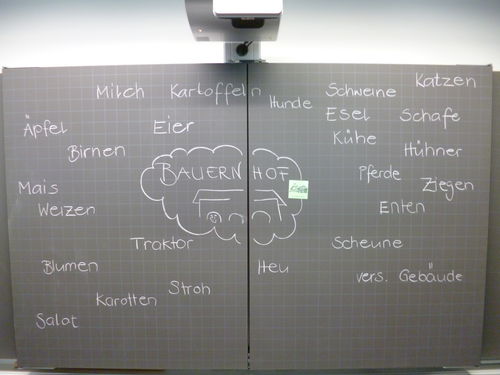 Milch
Kartoffeln
Hunde
Schweine
Katzen
Äpfel
Eier
Esel
Schafe
Birnen
Kühe
Hühner
BAUERNHOF
Pferde
Ziegen
Mais
Weizen
Enten
Traktor
Scheune
Blumen
Heu
vers. Gebäude
Karotten
Stroh
Salat